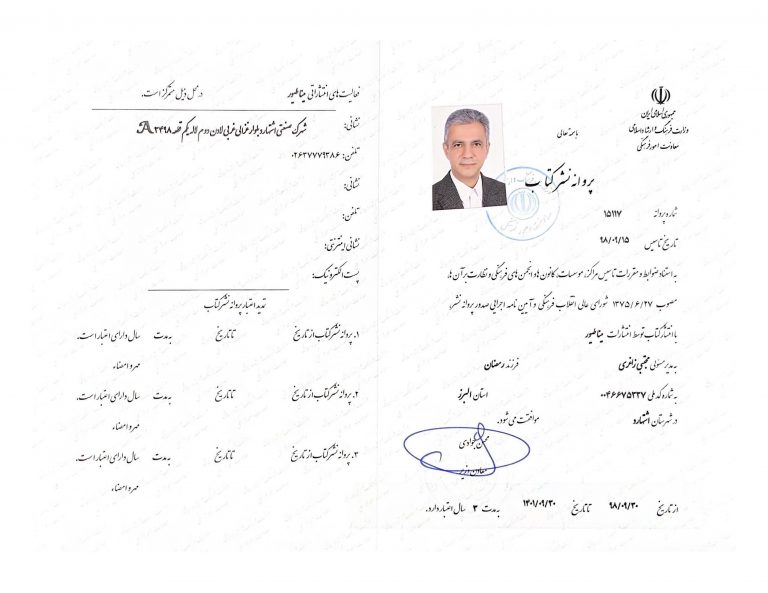 جمهوری اسلامی ایران
وزارت فرهنگ و ارشاد اسلامی
معاونت امور فرهنگی
باسمه تعالی
پروانه نشر کتاب
شماره پروانه ۱۵۱۱۷
تاریخ تاسیس ۹۸/۰۹/۱۵
به استناد ضوابط و مقررات تاسیس مراکز، موسسات، کانون ها و انجمن های فرهنگی و نظارت بر آن ها،
مصوب ۱۳۷۵/۶/۲۷ شورای عالی انقلاب فرهنگی و آیین نامه اجرایی صدور پروانه نشر،
با انتشار کتاب توسط انتشارات میناطیور
به مدیر مسئولی مجتبی زافری فرزند رمضان
به شماره کد ملی ۰۰۴۶۶۷۵۳۳۷ استان البرز
در شهرستان اشتهارد موافقت می شود.
محسن جوادی
معاون وزیر
از تاریخ ۹۸/۰۹/۳۰ تا تاریخ ۱۴۰۱/۰۹/۳۰ به مدت ۳ سال اعتبار دارد.
فعالیت های انتشاراتی میناطیور در محل ذیل متمرکز است.
نشانی: شهرک صنعتی اشتهارد بلوار غزالی غربی لادن دوم لاله یکم قطعه A۲۴۹۸
تلفن: ۰۲۶۳۷۷۷۹۳۸۶
نشانی:
تلفن:
نشانی اینترنتی:
پست الکترونیک:
تمدید اعتبار پروانه نشر کتاب
۱. پروانه نشر کتاب از تاریخ تا تاریخ به مدت سال دارای اعتبار است.
مهر و امضاء
۲. پروانه نشر کتاب از تاریخ تا تاریخ به مدت سال دارای اعتبار است.
مهر و امضاء
۳. پروانه نشر کتاب از تاریخ تا تاریخ به مدت سال دارای اعتبار است.
مهر و امضاء